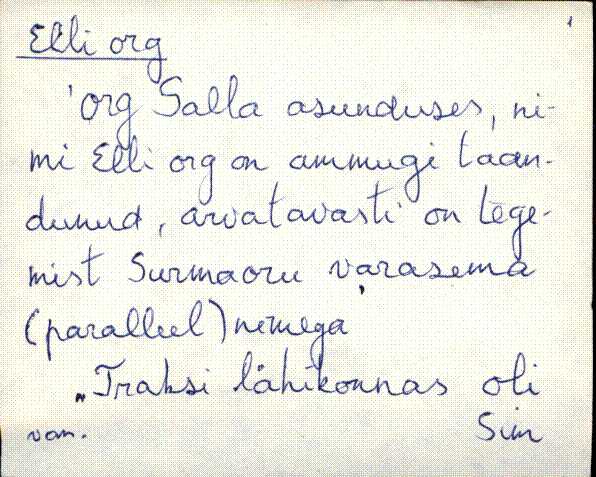 1
Elli org
'org Salla asunduses, ni-
mi Elli org on ammugi taan-
dunud, arvatavasti on tege-
mist Surmaoru varasema
(paralleel) nimega
„Traksi lähikonnas oli
van. Sim